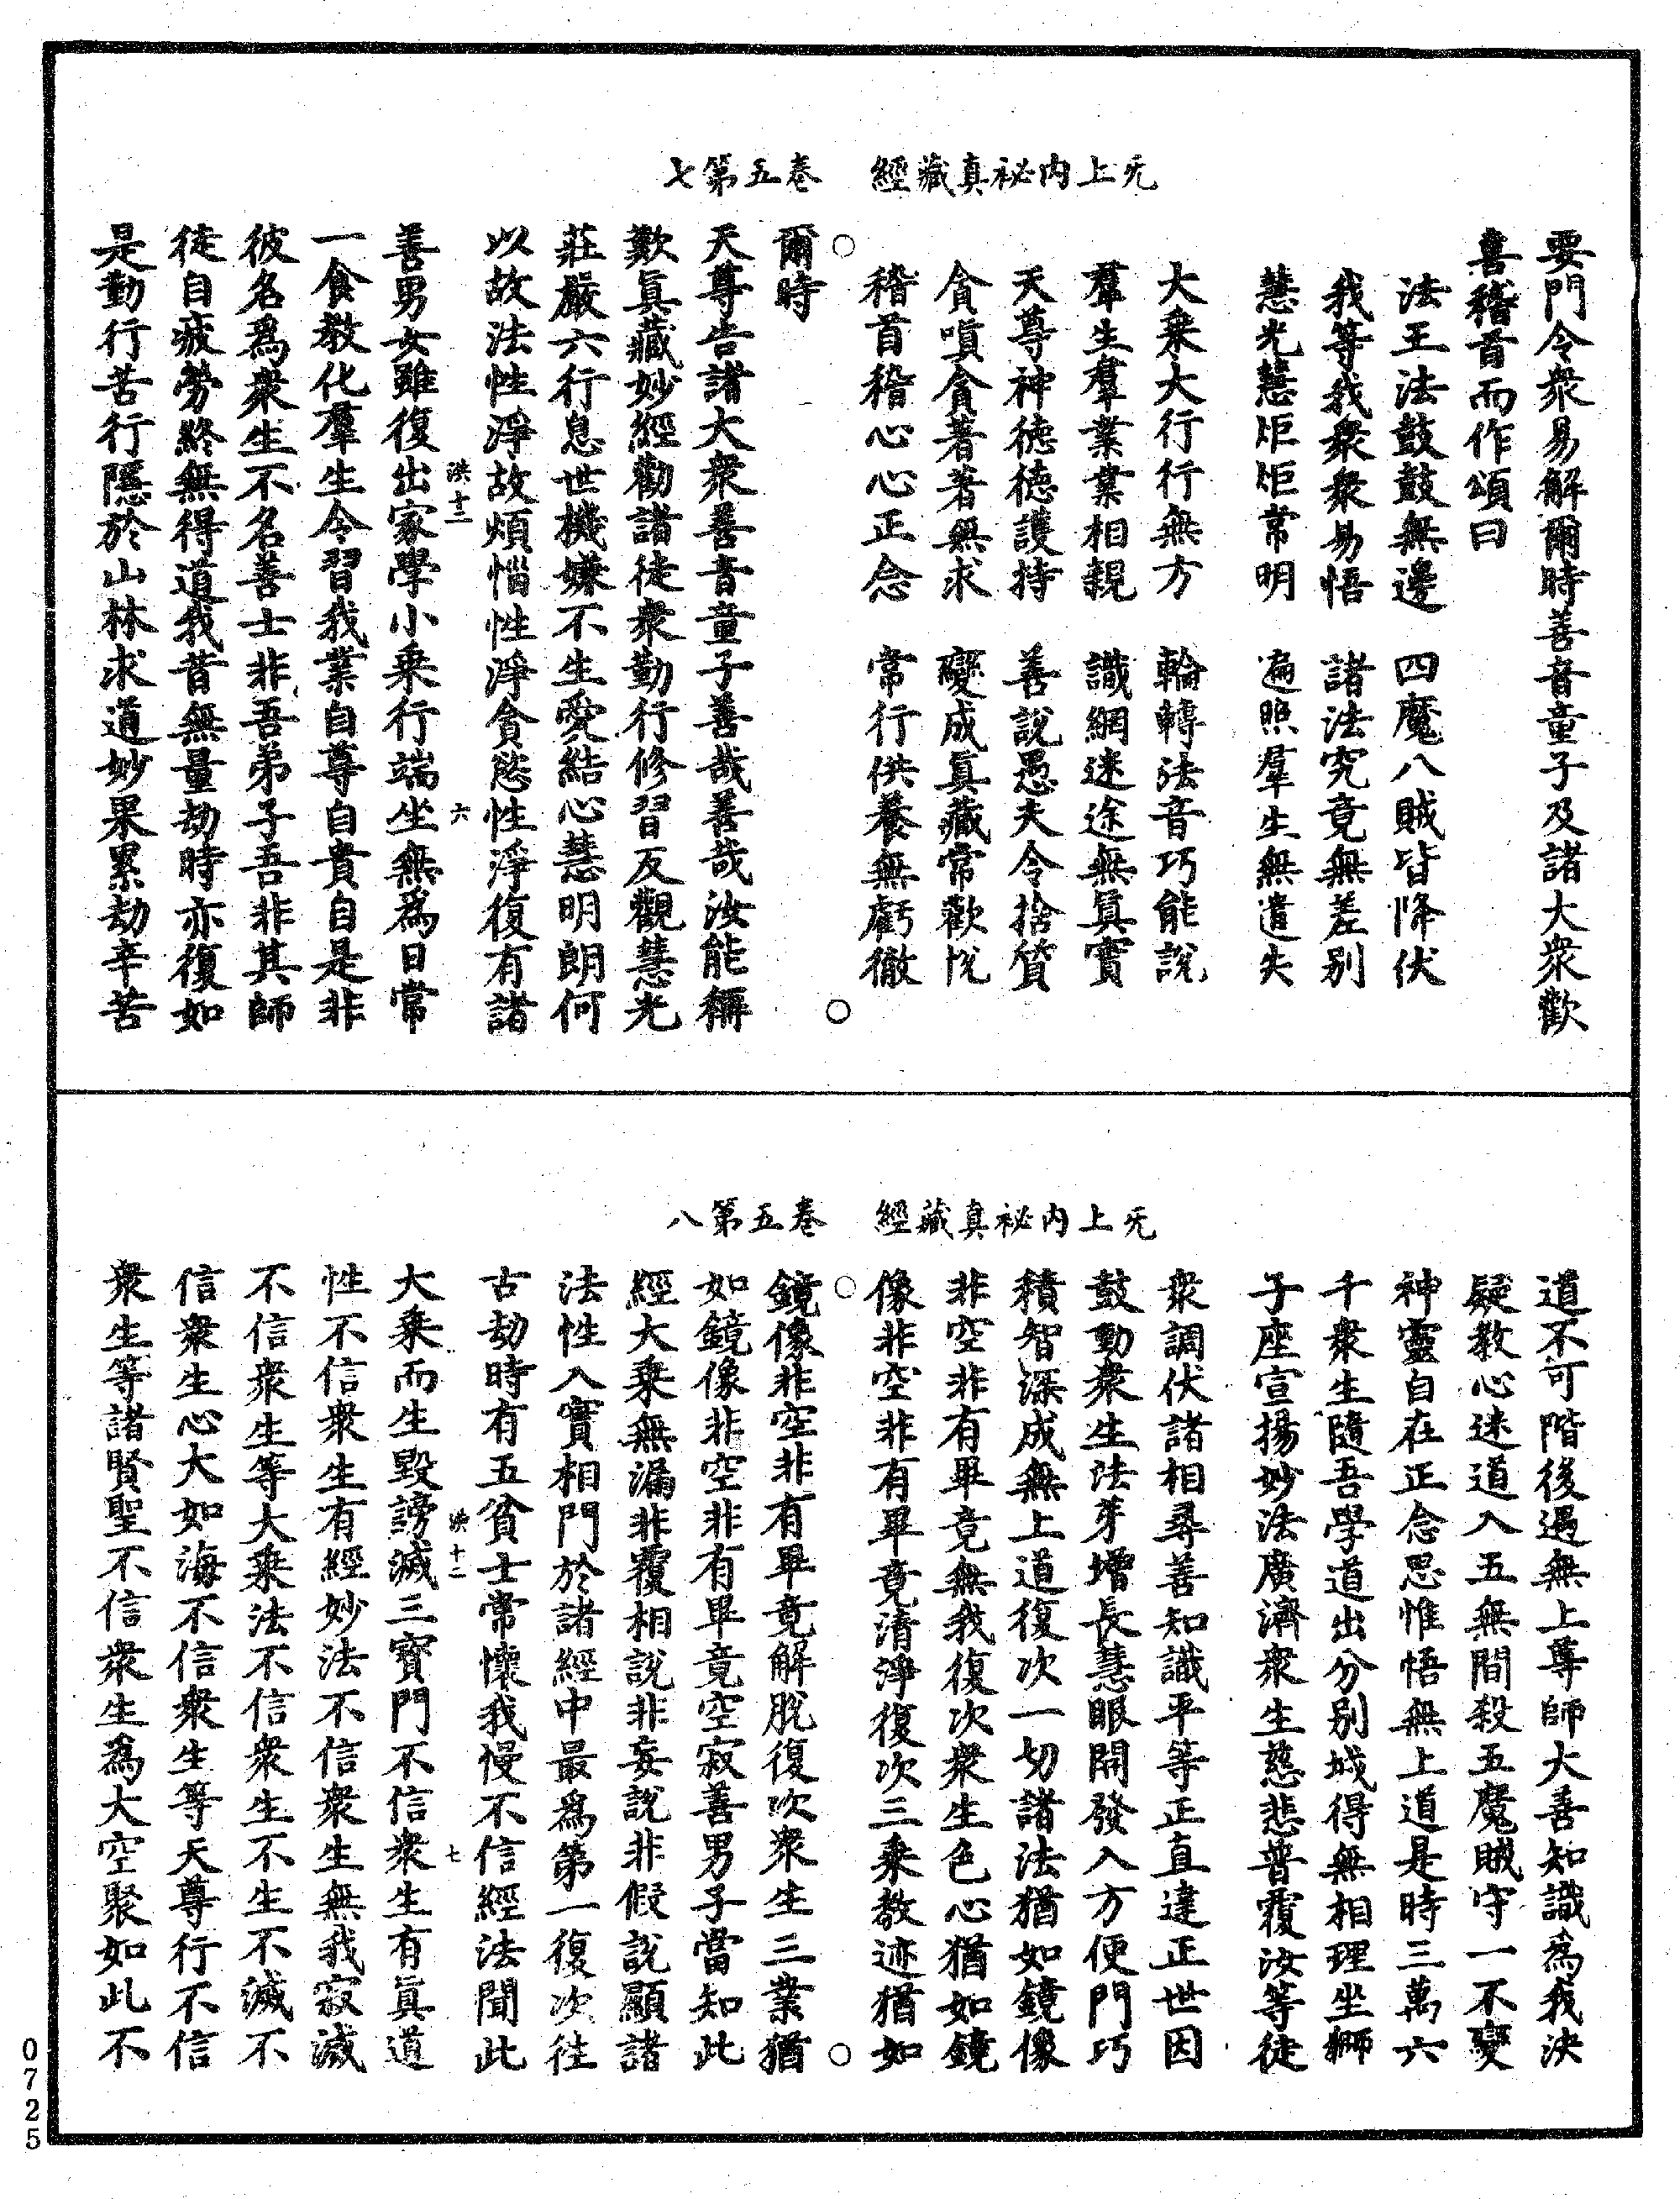 无上內祕真藏經　卷五第七
要門令衆易解爾時善音童子及諸大衆歡
喜稽首而作頌曰
法王法鼓鼓無邊　四魔八賊皆降伏
我等我衆衆易悟　諸法究竟無差別
慧光慧炬炬常明　遍照羣生無遺失
大乘大行行無方　輪轉法音巧能說
羣生羣業業相親　識網迷途無真實
天尊神德德護持　善說愚夫令捨質
貪嗔貪貪著著無求　變成真藏常歡悅
稽首稽心心正念　常行供養無虧徹
爾時
天尊告諸大衆善音童子善哉善哉汝能稱
歎真藏妙經勸諸徒衆勤行修習反觀慧光
莊嚴六行息世機嫌不生愛結心慧明朗何
以故法性淨故煩惱性淨貪慾性淨復有諸
淡十二　六
善男女雖復出家學小乘行端坐無爲日常
一食教化羣生令習我業自尊自貴自是非
彼名爲衆生不名善士非吾弟子吾非其師
徒自疲勞終無得道我昔無量劫時亦復如
是勤行苦行隱於山林求道妙果累劫辛苦
无上內祕真藏經　卷五第八
道不可階後遇無上尊師大善知識爲我決
疑教心迷道入五無間殺五魔賊守一不變
神靈自在正念思惟悟無上道是時三萬六
千衆生隨吾學道出分別城得無相理坐獅
子座宣揚妙法廣濟衆生慈悲普覆汝等徒
衆調伏諸相尋善知識平等正直達正世因
鼓動衆生法芽增長慧眼開發入方便門巧
積智深成無上道復次一切諸法猶如鏡像
非空非有畢竟無我復次衆生色心猶如鏡
像非空非有畢竟清淨復次三乘教迹猶如
鏡像非空非有畢竟解脫復次衆生三業猶
如鏡像非空非有畢竟空寂善男子當知此
經大乘無漏非覆相說非妄說非假說顯諸
法性入實相門於諸經中最爲第一復次往
古劫時有五貧士常懷我慢不信經法聞此
淡十二　七
大乘而生毀謗滅三寶門不信衆生有真道
性不信衆生有經妙法不信衆生無我寂滅
不信衆生等大乘法不信衆生不生不滅不
信衆生心大如海不信衆生等天尊行不信
衆生等諸賢聖不信衆生爲大空聚如此不
0725